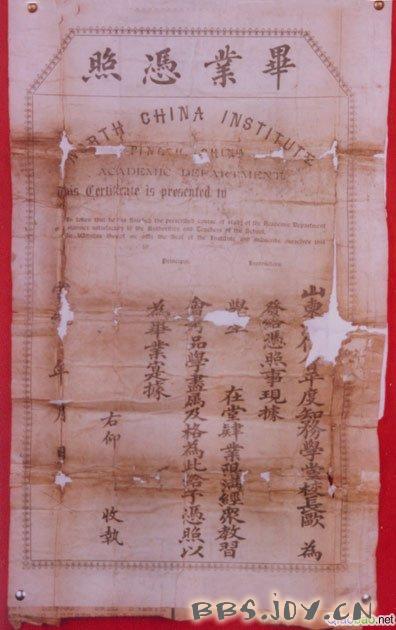 畢業憑照
NORTH CHINA INSTITUTE
CHINA
ACADEMIC DEPARTMENT
This Certificate is presented to
In token that he has finished the prescribed course of study of the Academic Department
manner satisfactory to the Authorities and Teachers of the School.
In Witness thereof we affix the Seal of the Institute and subscribe ourselves this
Principal. Instructors.
山東 度知務學堂校長歐 為
發給憑照事現據
學生 在堂肄業限滿經眾教習
會考品學盡屬及格為此給予憑照以
為畢業實據
右仰 收執
年 月 日
BBS.JOY.CN
.net